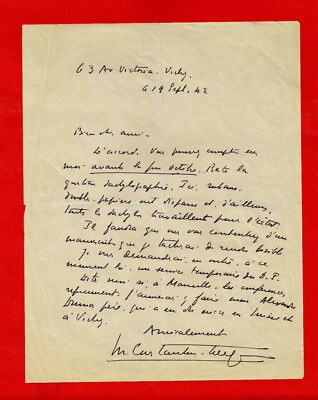 63 Av Victoria. Vichy.
le 19 Sept. 42
Bien cher ami.
D'accord. Vous pouvez compter sur
moi avant le fin octobre. Reste la
question dactylographie. Ici, rubans,
double-papiers ont disparu et, d'ailleurs,
toutes les dactylos travaillent pour l'état.
Il faudra que vous vous contentiez d'un
manuscrit que je tacherai de rendre lisible.
Je vous demanderai, en outre, à ce
moment là, un service temporaire du B.P.
Dites moi si, à Marseille, les conférences
reprennent. J'aimerais y faire mon Alexandre
Dumas père, qui a eu du succès en Suisse et
à Vichy.
Amicalement
M Constantin-Weyer